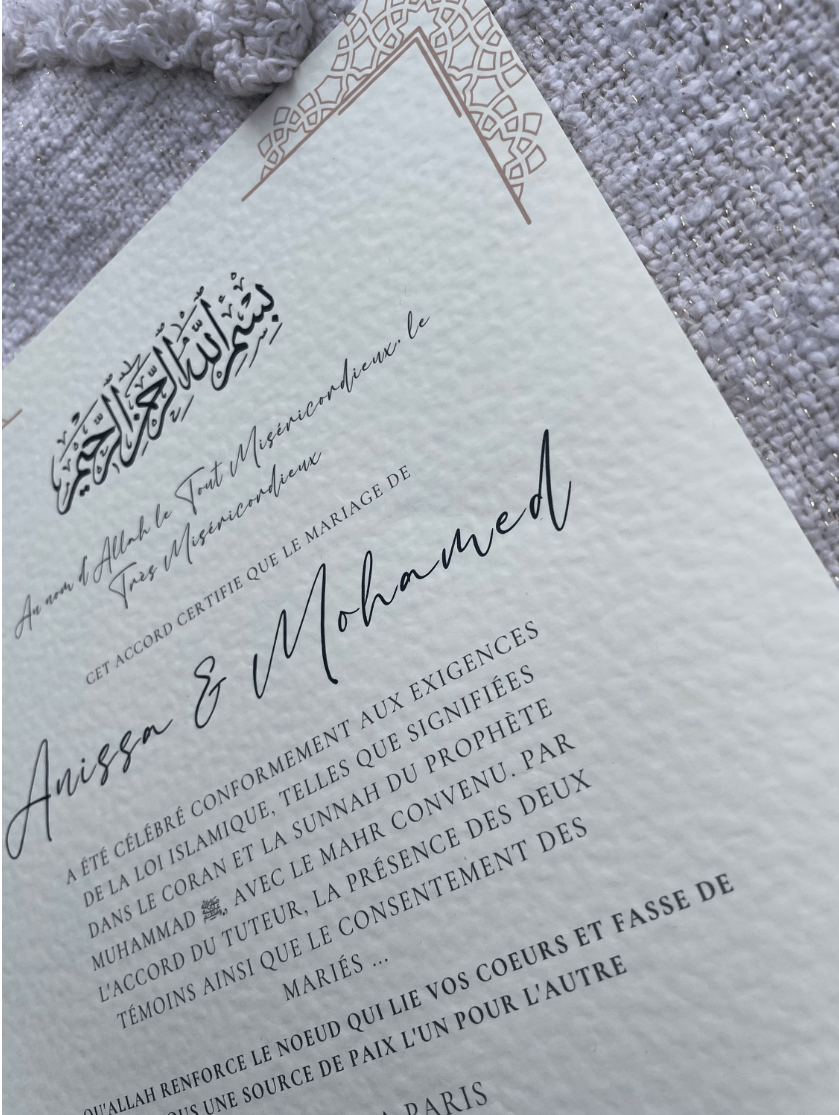 بسم الله الرحمن الرحيم
Au nom d'Allah le Tout Miséricordieux, le
Très Miséricordieux
CET ACCORD CERTIFIE QUE LE MARIAGE DE
Anissa & Mohamed
A ÉTÉ CÉLÉBRÉ CONFORMEMENT AUX EXIGENCES
DE LA LOI ISLAMIQUE, TELLES QUE SIGNIFIÉES
DANS LE CORAN ET LA SUNNAH DU PROPHÈTE
MUHAMMAD ﷺ, AVEC LE MAHR CONVENU. PAR
L'ACCORD DU TUTEUR, LA PRÉSENCE DES DEUX
TÉMOINS AINSI QUE LE CONSENTEMENT DES
MARIÉS ...
QU'ALLAH RENFORCE LE NOEUD QUI LIE VOS COEURS ET FASSE DE
VOUS UNE SOURCE DE PAIX L'UN POUR L'AUTRE
A PARIS